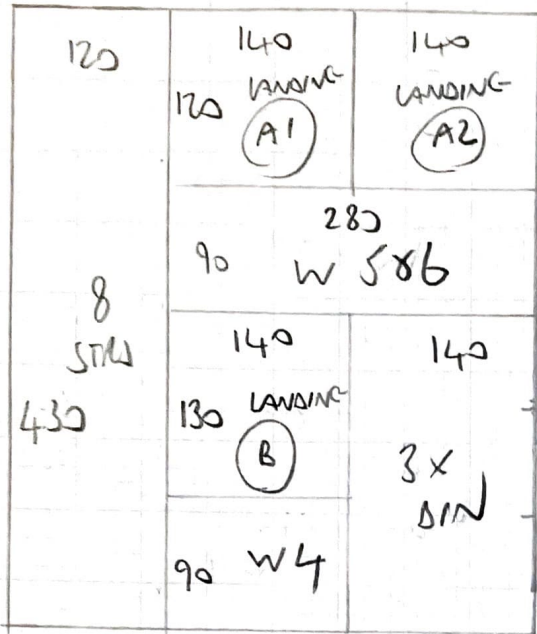 120
8
430
140
120 LANDING
A1
140
LANDING
A2
280
90 W 5&6
140
130 LANDING
B
90 W4
140
3X
DIN